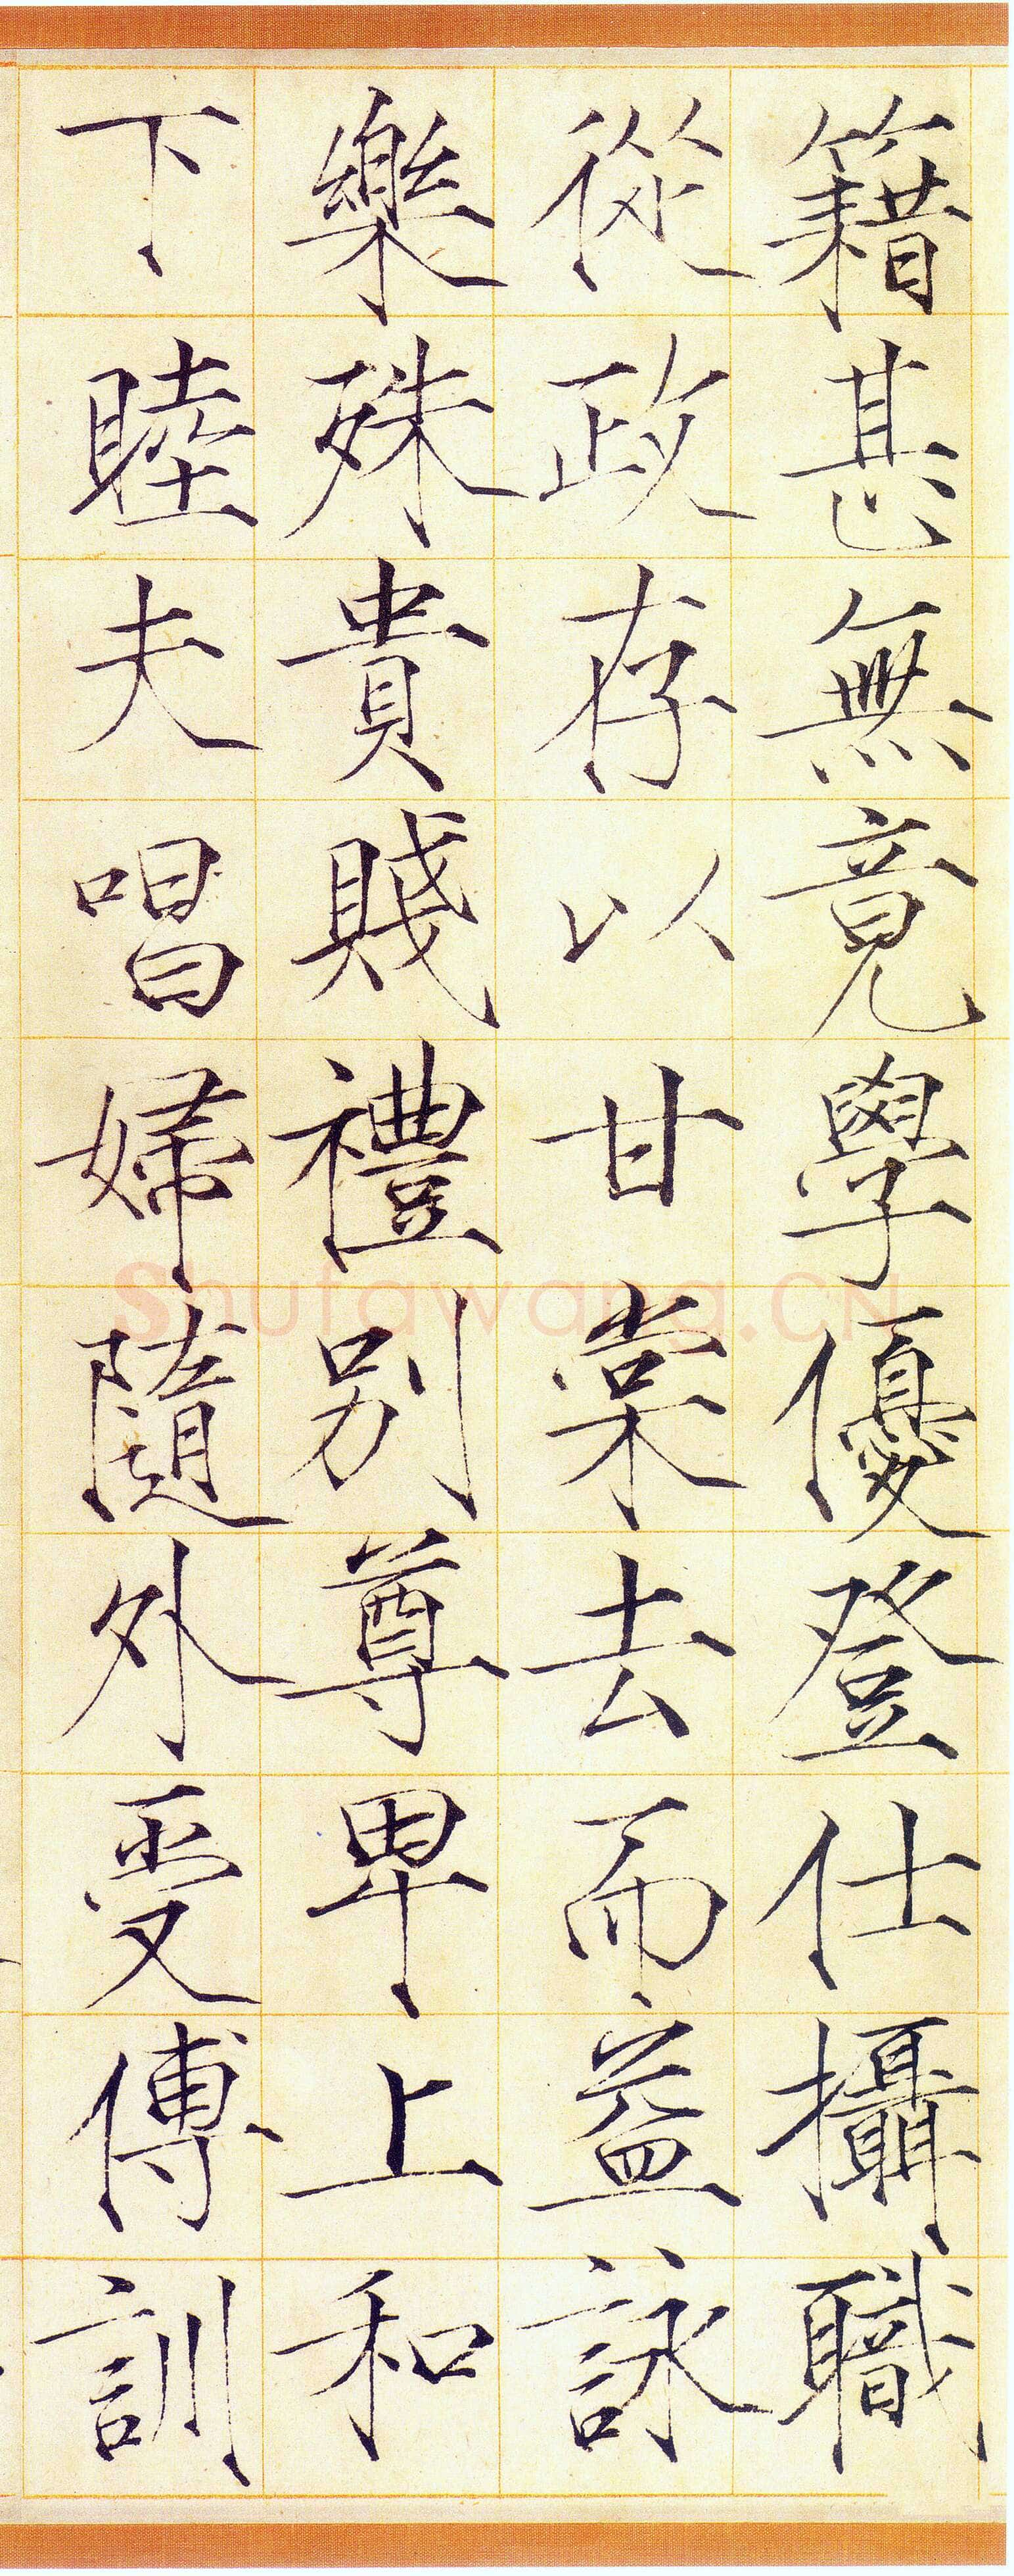 籍甚無竟學優登仕攝職
從政存以甘棠去而益詠
樂殊貴賤禮別尊卑上和
下睦夫唱婦隨外受傅訓
shufawang.CN